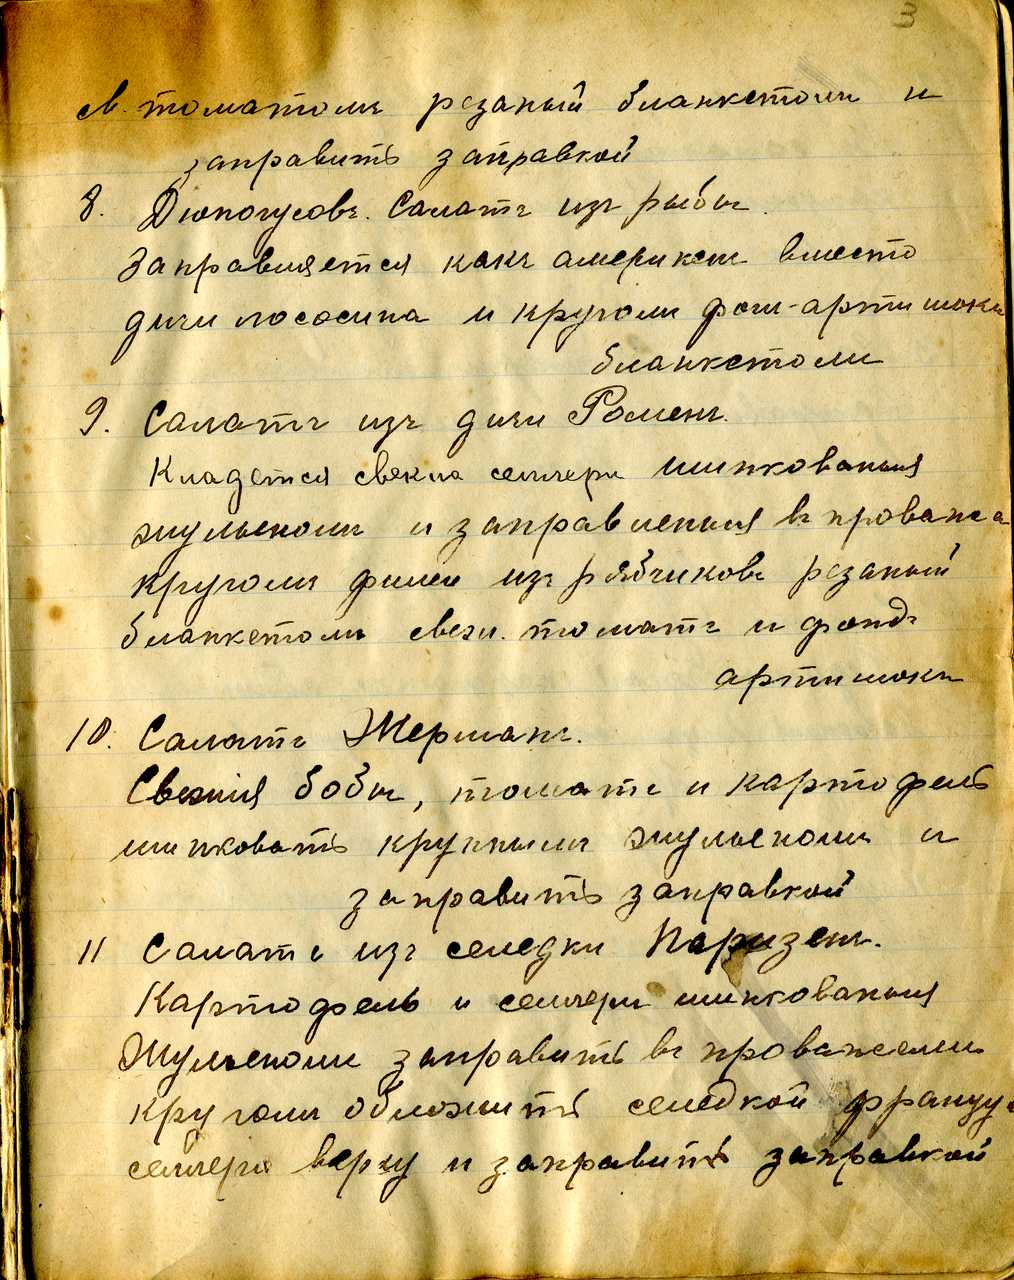 3
св. томатомъ резаный бланкетомъ и
заправить заправкой
8. Дюпогусовъ. Салатъ изъ рыбы.
Заправляется какъ америкен вместо
дичи лососина и кругомъ фон-артишокъ
бланкетомъ
9. Салатъ изъ дичи Роменъ.
Кладется свекла селлери шинкованыя
жульеномъ и заправленыя въ прованса
кругомъ филеи изъ рябчиковъ резаный
бланкетомъ свеж. томатъ и фондъ
артишокъ
10. Салатъ Жерманъ.
Свежия бобы, томатъ и картофель
шинковать крупнымъ жульеномъ и
заправить заправкой
11 Салатъ из селедки Паризен.
Картофель и селлери шинкованыя
Жульеномъ заправить въ провансалем
кругомъ обложить селедкой францу
селлери верху и заправить заправкой